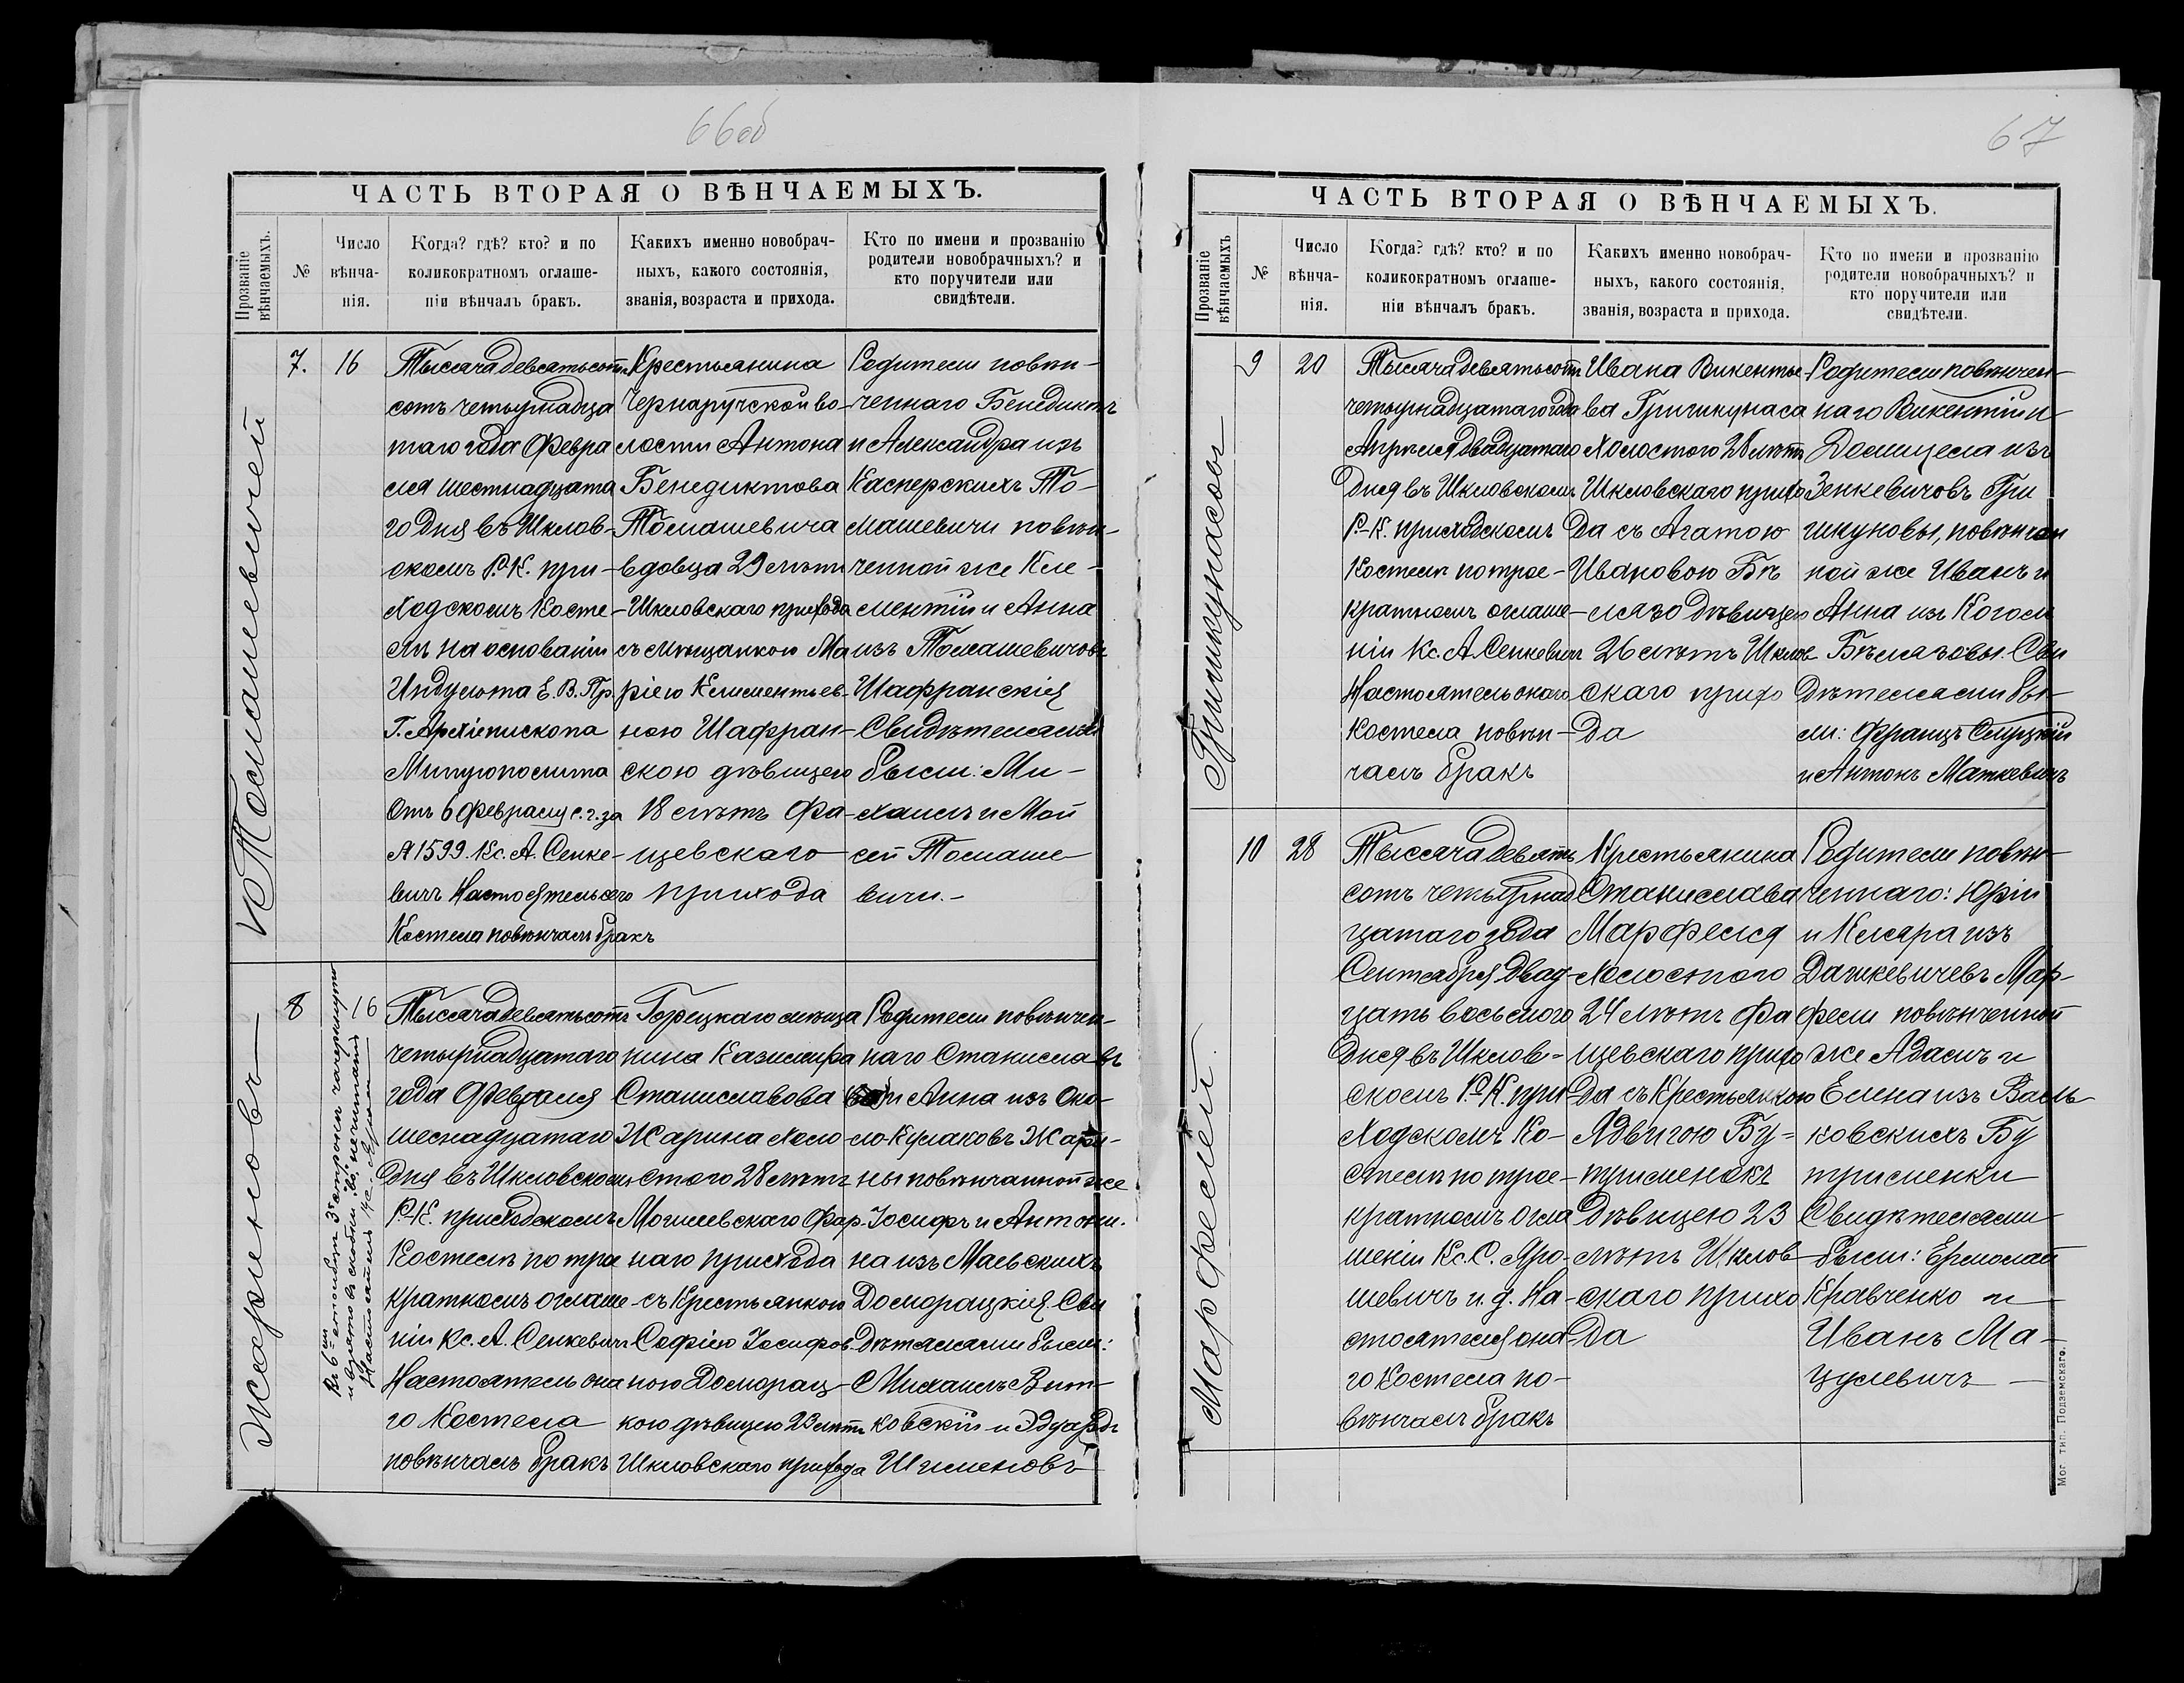 66об
ЧАСТЬ ВТОРАЯ О ВѢНЧАЕМЫХЪ.
Прозваніе вѣнчаемыхъ.
№
Число вѣнча-нія.
Когда? гдѣ? кто? и по
коликократномъ оглаше-
ніи вѣнчалъ бракъ.
Какихъ именно новобрач-
ныхъ, какого состоянія,
званія, возраста и прихода.
Кто по имени и прозванію
родители новобрачныхъ? и
кто поручители или
свидѣтели.
Томашевичей
7.
16
Тысяча девятьсотъ
сотъ четырнадца
таго года Февра
ля шестнадцата
го дня въ Шклов-
скомъ Р.К. при-
ходскомъ Косте-
лѣ на основаніи
Индульта Е.В.Пр.
Г. Архіепископа
Митрополита
Отъ 6 Февраля с.г. за
№ 1599. Кс. А. Сенке-
вичъ Настоятель сего
Костела повѣнчалъ бракъ
Крестьянина
Чернаручской во-
лости Антона
Бенедиктова
Томашевича
вдовца 29 лѣтъ
Шкловскаго прихода
съ мѣщанкою Ма
ріею Климентьев-
ною Шафран-
скою дѣвицею
18 лѣтъ Фа-
щевскаго
прихода
Родители повѣн-
ченнаго Бенедиктъ
и Александра изъ
Касперскихъ То-
машевичи повѣн-
ченной же Кле-
ментій и Анна
изъ Томашевичовъ
Шафранскія
Свидѣтелями
были: Ми-
хаилъ и Мой
сей Томаше
вичи.-
Жариновъ
8
16
Въ 6ой
графѣ 3я строка зачеркнуто
Настоятель Кс.
Тысяча девятьсотъ
четырнадцатаго
года Февраля
шеснадцатаго
дня въ Шкловскомъ
Р.-К. приходскомъ
Костелѣ по трое
кратномъ оглаше-
ніи Кс. А. Сенкевичъ
Настоятель она
го Костела
повѣнчалъ бракъ
Горецкаго мѣща
нина Казимира
Станиславова
Жарина холо
стого 28 лѣтъ
Могилевскаго Фар-
наго прихода
съ Крестьянкою
Софією Іосифов-
ною Доморац-
кою дѣвицею 23 лѣтъ
Шкловскаго прихода
Родители повѣнчен-
наго Станиславъ
и Анна изъ Око-
ло-Кулаковъ Жари-
ны повѣнчанной же
Іосифъ и Антони-
на изъ Маевскихъ
Доморацкія. Сви
дѣтелями были:
Михаилъ Вит-
ковскій и Эдуардъ
Шименовъ
67
ЧАСТЬ ВТОРАЯ О ВѢНЧАЕМЫХЪ.
Прозваніе вѣнчаемыхъ
№
Число вѣнча-нія.
Когда? гдѣ? кто? и по
коликократномъ оглаше-
ніи вѣнчалъ бракъ.
Какихъ именно новобрач-
ныхъ, какого состоянія,
званія, возраста и прихода.
Кто по имени и прозванію
родители новобрачныхъ? и
кто поручители или
свидѣтели.
Гришкунасы
9
20
Тысяча девятьсотъ
четырнадцатаго года
Апрѣля двадцатаго
дня въ Шкловскомъ
Р.-К. приходскомъ
Костелѣ по трое-
кратномъ оглаше-
ніи Кс. А. Сенкевичъ
Настоятель онаго
Костела повѣн-
чалъ бракъ
Ивана Викентье
ва Гришкунаса
холостого 28 лѣтъ
Шкловскаго прихо
да съ Агатою
Ивановою Бѣ
лязо дѣвицею
26 лѣтъ Шклов
скаго прихо
да
Родители повѣнчен-
наго Викентій и
Домицела изъ
Зенкевичовъ Гри
шкуновы, повѣнчан
ной же Иванъ и
Анна изъ Коголь
Бѣлязовы. Сви
дѣтелями бы-
ли: Францъ Слуцкій
и Антонъ Маткевичъ
Марфелей.
10
28
Тысяча девять
сотъ четырнад
цатаго года
Сентября двад-
цать восьмого
дня въ Шклов-
скомъ Р.-К. при
ходскомъ Ко-
стелѣ по трое-
кратномъ огла
шеніи Кс. С. Яро-
шевичъ и. д. На-
стоятеля она-
го Костела по-
вѣнчалъ бракъ
Крестьянина
Станислава
Марфеля
холостого
24 лѣтъ Фа
щевскаго прихо
да съ Крестьянкою
Ядвигою Бу-
трименокъ
дѣвицею 23
лѣтъ Шклов
скаго прихо
да
Родители повѣн-
ченнаго: Юрій
и Кляра изъ
Дашкевичевъ Мар-
фели повѣнченной
же Адамъ и
Елена изъ Вась-
ковскихъ Бу
трименки
Свидѣтелями
были: Ермолай
Кравченко и
Иванъ Ма-
цулевичъ
Мог. тип. Подземскаго.